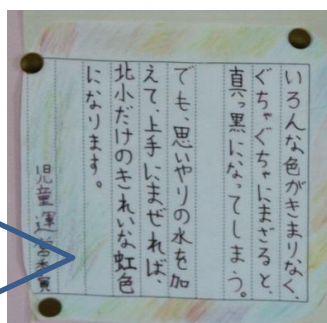 いろんな色がきまりなく、
ぐちゃぐちゃにまざると、
真っ黒になってしまう。
でも、思いやりの水を加
えて、上手にまぜれば、
北小だけのきれいな虹色
になります。
児童運営委員